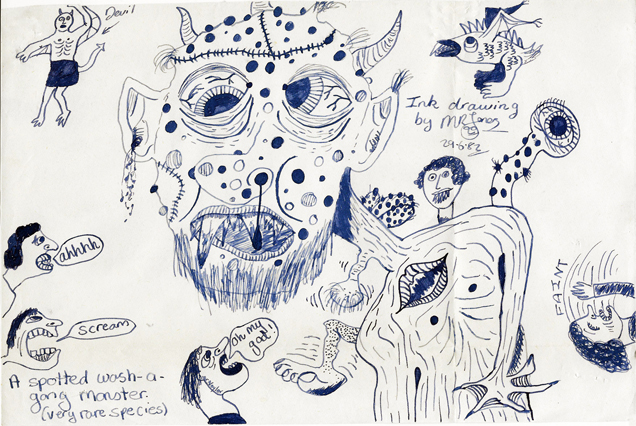 Devil
Ink drawing
by MR Jones
29-6-82
ahhhh
scream
oh my
god!
FAINT
A spotted wash-a-
gong monster.
(very rare species)